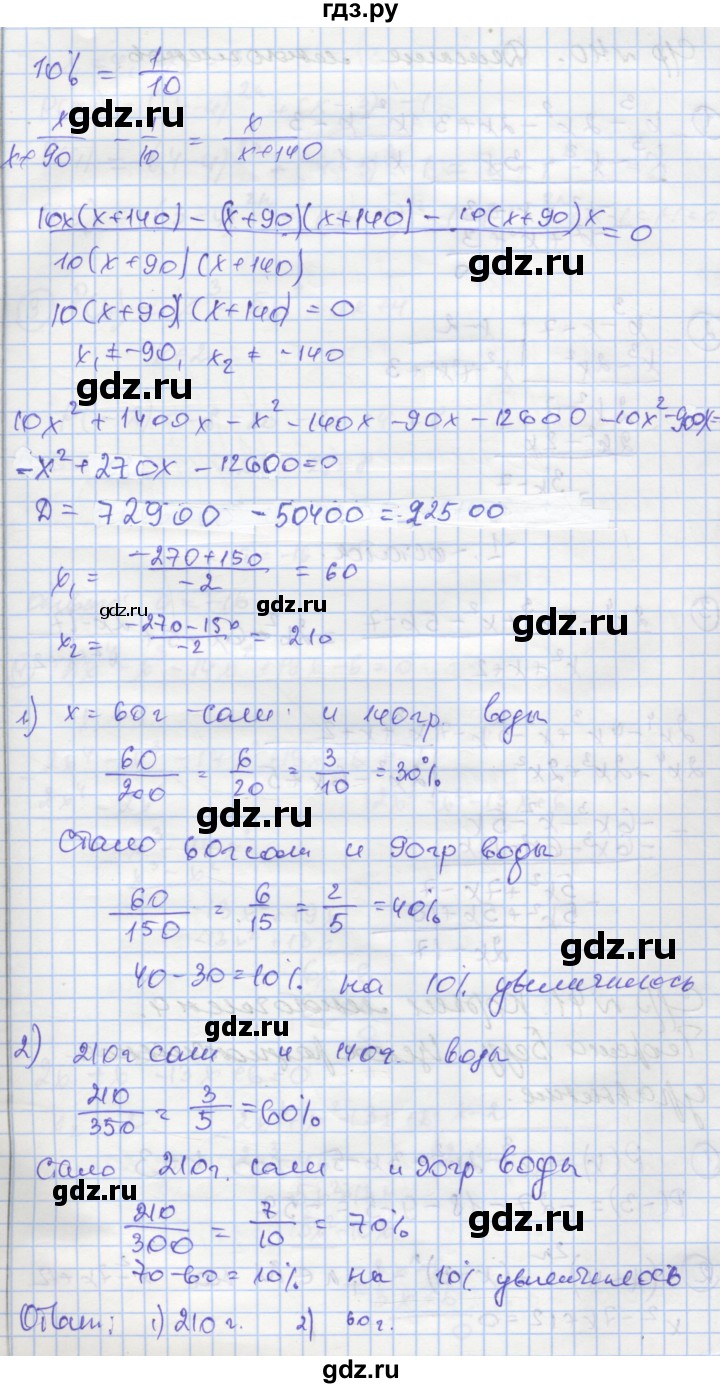 гдз.ру
10% = 1/10
gdz.ru
x/(x+90) - 1/10 = x/(x+140)
10x(x+140) - (x+90)(x+140) - 10(x+90)x = 0
10(x+90)(x+140)
gdz.ru
10(x+90)(x+140) = 0
x₁ ≠ -90, x₂ ≠ -140
gdz.ru
10x² + 1400x - x² - 140x - 90x - 12600 - 10x² - 900x =
-x² + 270x - 12600 = 0
Д = 72900 - 50400 = 22500
x₁ = (-270+150)/-2 = 60
gdz.ru gdz.ru
gdz.ru
x₂ = (-270-150)/-2 = 210
1) x = 60г - соли и 140гр. воды
60/200 = 6/20 = 3/10 = 30%
gdz.ru
Стало 60г соли и 90гр воды
60/150 = 6/15 = 2/5 = 40%
gdz.ru
40-30=10% на 10% увеличилось
gdz.ru
2) 210г соли и 140г. воды
210/350 = 3/5 = 60%
Стало 210г. соли и 90гр воды
gdz.ru
210/300 = 7/10 = 70%
gdz.ru
70-60=10% на 10% увеличилось
Ответ: 1) 210г. 2) 60г.
gdz.ru
gdz.ru